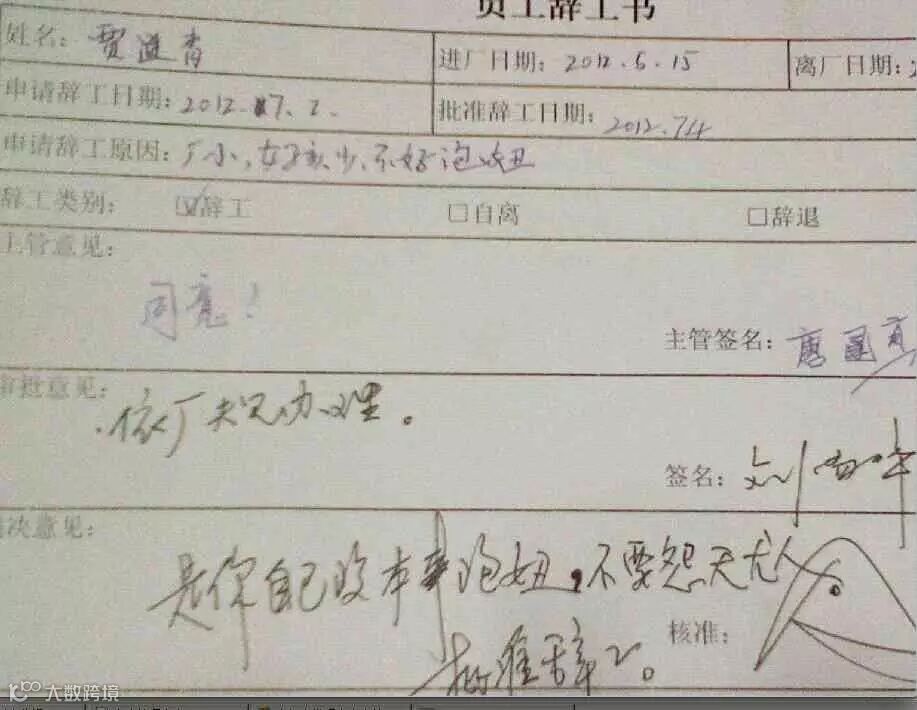 员工辞工书
姓名：贾进青 进厂日期：2012.6.15 离厂日期：2
申请辞工日期：2012.7.2. 批准辞工日期：2012.7.4
申请辞工原因：厂小，女孩少，不好泡妞
辞工类别： ☑辞工 □自离 □辞退
主管意见：
同意！
主管签名：唐
审批意见：
依厂规办理。
签名：刘
决意见：
是你自己没本事泡妞，不要怨天尤人。
核准：
批准辞工。
大数跨境